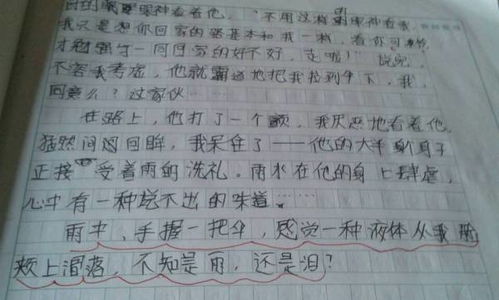 目的眼神看着他,"不用这样的眼神看我,
我只是想你回家的路基本和我一样,看你可怜
才勉强与一同回家的好不好,走啦!"说完,
不容我考虑,他就霸道地把我拉到伞下,我,
同意么?这家伙……
在路上,他打了一个颤,我厌恶地看着他,
猛然间回眸,我呆住了——他的大半身子
正接受着雨的洗礼。雨水在他的身上肆虐,
心中有一种说不出的味道……
雨中,手握一把伞,感觉一种液体从我脸
颊上滑落,不知是雨,还是泪?